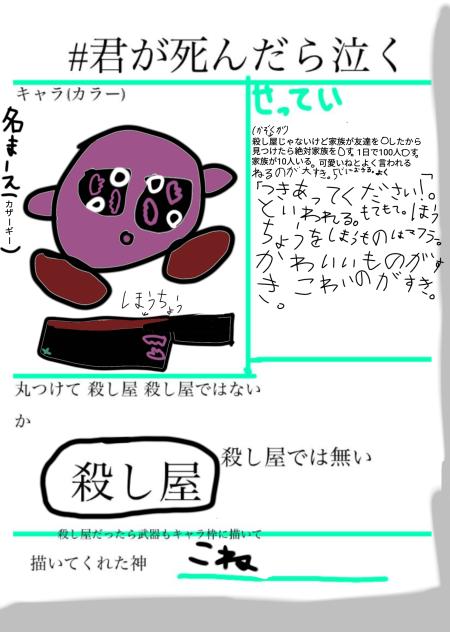 #君が死んだら泣く
キャラ(カラー)
せってい
殺し屋じゃないけど家族が友達を〇したから
見つけたら絶対家族を〇す。1日で100人〇す。
家族が10人いる。可愛いねとよく言われる
ねるのが大すき。
「つきあってください！」
といわれる。もてもて。ほう
ちょうをしまうものはマフラー。
かわいいものがす
き こわいのがすき。
名まース
(カザーギー)
しほうちょう
丸つけて 殺し屋 殺し屋ではない
か
殺し屋
殺し屋では無い
殺し屋だったら武器もキャラ枠に描いて
描いてくれた神
こね